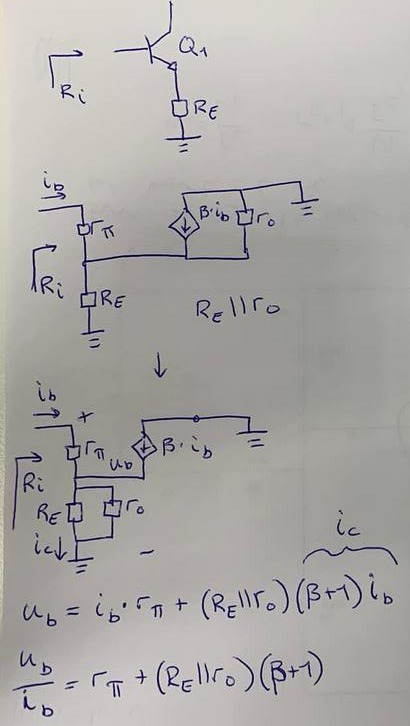 Q1
Ri
RE
ib
rπ
β·ib
ro
Ri
RE
RE||ro
↓
ib
+
rπ
ub
β·ib
Ri
RE
ro
ic↓
-
ic
ub = ib·rπ + (RE||ro)(β+1)ib
ub/ib = rπ + (RE||ro)(β+1)